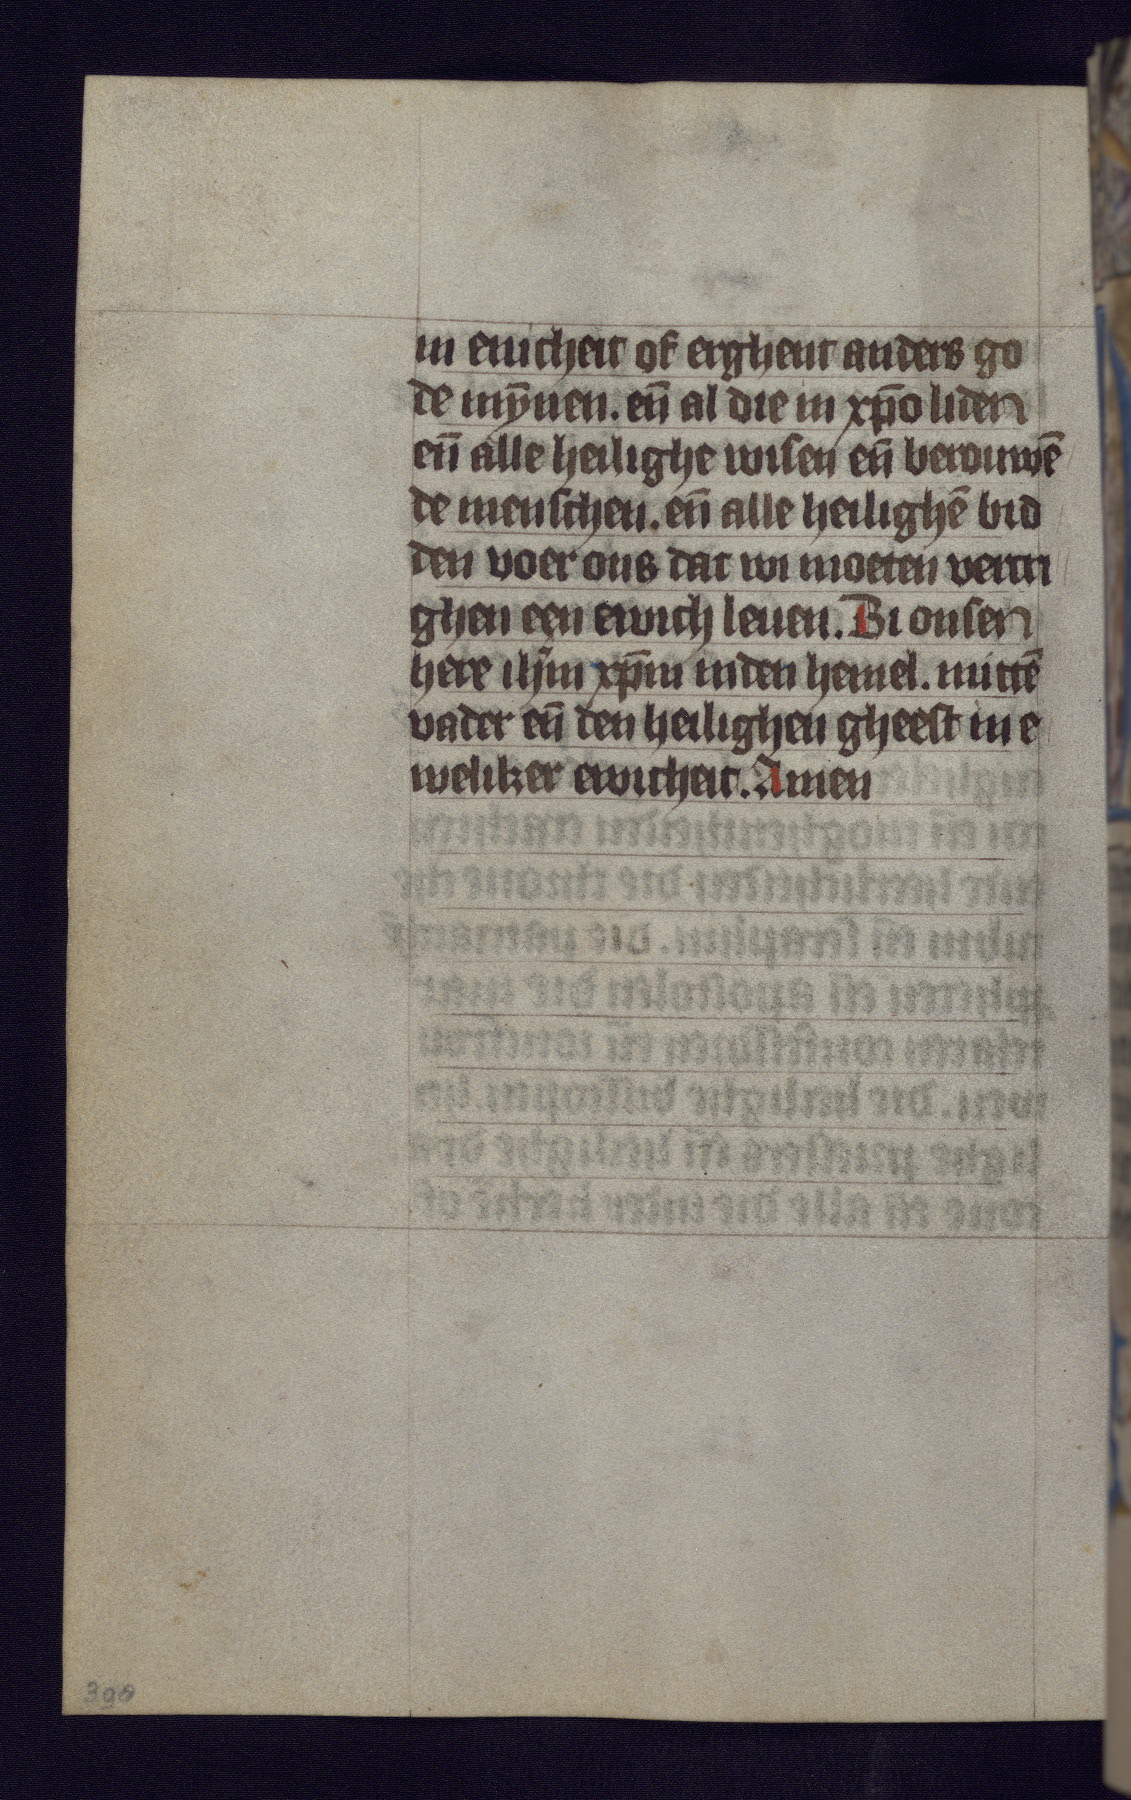 in enicheit of erghent anders go
de mȳnen. en̄ al die in xp̄o liden
en̄ alle heilighe wisen en̄ berouwē
de menschen. en̄ alle heilighē bid
den voer ons dat wi moeten vercri
ghen een ewich leuen. Bi onsen
here ihm̄ xp̄m inden hemel. mittē
vader en̄ den heilighen gheest in e
weliker ewicheit. Amen
390